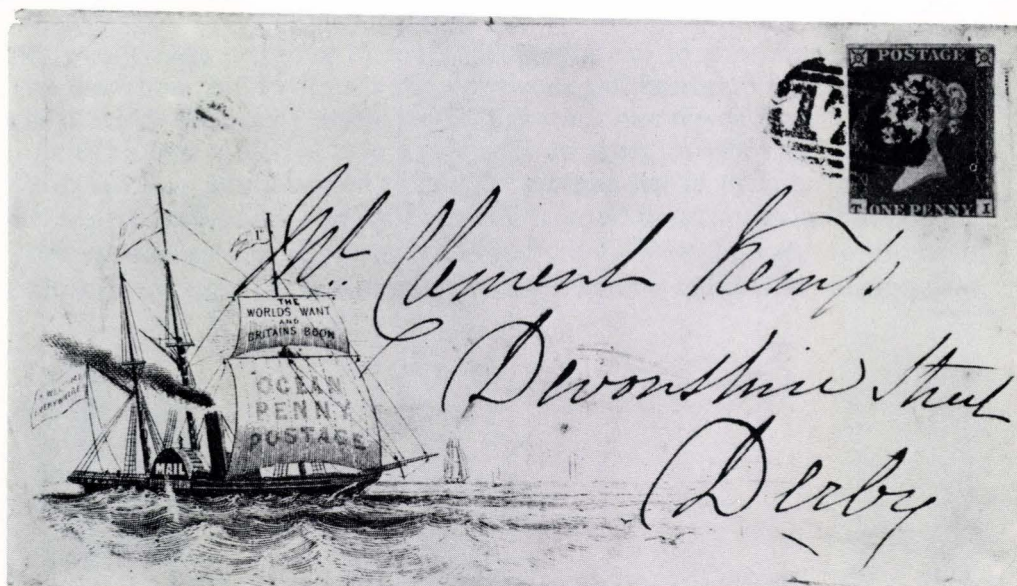 POSTAGE
T ONE PENNY I
Mr. Clement Kemp
Devonshire Street
Derby
THE
WORLDS WANT
AND
BRITAINS BOON
OCEAN
PENNY
POSTAGE
EVERYWHERE
MAIL